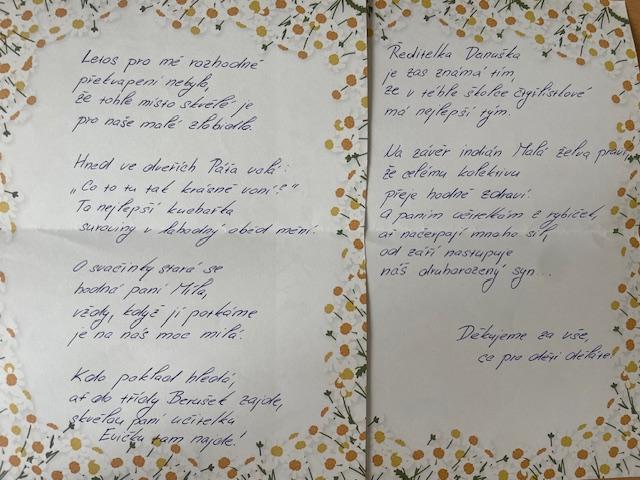 Letos pro mě rozhodně
překvapení nebylo,
že tohle místo skvělé je
pro naše malé zlobidlo.
Hned ve dveřích Páťa volá:
„Co to tu tak krásně voní?"
To nejlepší kuchařka
suroviny v lahodný oběd mění.
O svačinky stará se
hodná paní Míla,
vždy, když ji potkáme
je na nás moc milá.
Kdo poklad hledá,
ať do třídy Berušek zajde,
skvělou paní učitelku
Evičku tam najde!
Ředitelka Danuška
je zas známá tím,
že v téhle školce čtyřlístkové
má nejlepší tým.
Na závěr indián Malá želva praví,
že celému kolektivu
přeje hodně zdraví.
A paním učitelkám z rybiček,
ať načerpají mnoho sil,
od září nastupuje
náš druhorozený syn...
Děkujeme za vše,
co pro děti děláte!